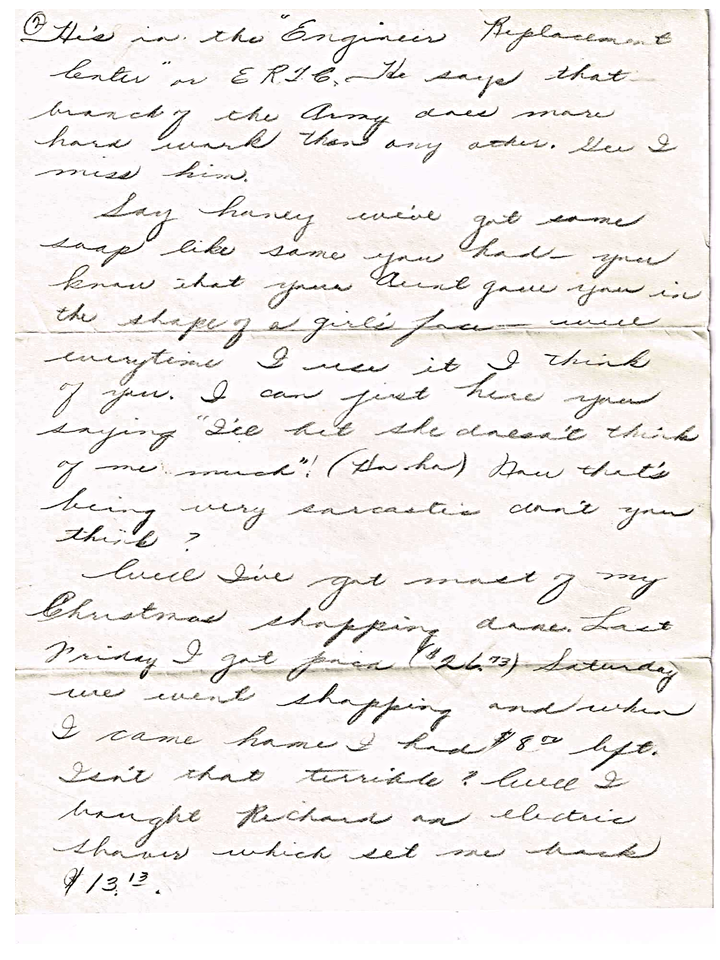 ② He's in the "Engineer Replacement
Center" or E R T C. He says that
branch of the Army does more
hard work than any other. Gee I
miss him.
Say honey we've got some
soap like some you had - you
know that your Aunt gave you in
the shape of a girl's face - well
everytime I use it I think
of you. I can just hear you
saying "I'll bet she doesn't think
of me much"! (Ha ha) Now that's
being very sarcastic don't you
think?
Well I've got most of my
Christmas shopping done. Last
Friday I got paid ($26.73) Saturday
we went shopping and when
I came home I had $8.00 left.
Isn't that terrible? Well I
bought Richard an electric
shaver which set me back
$13.13.